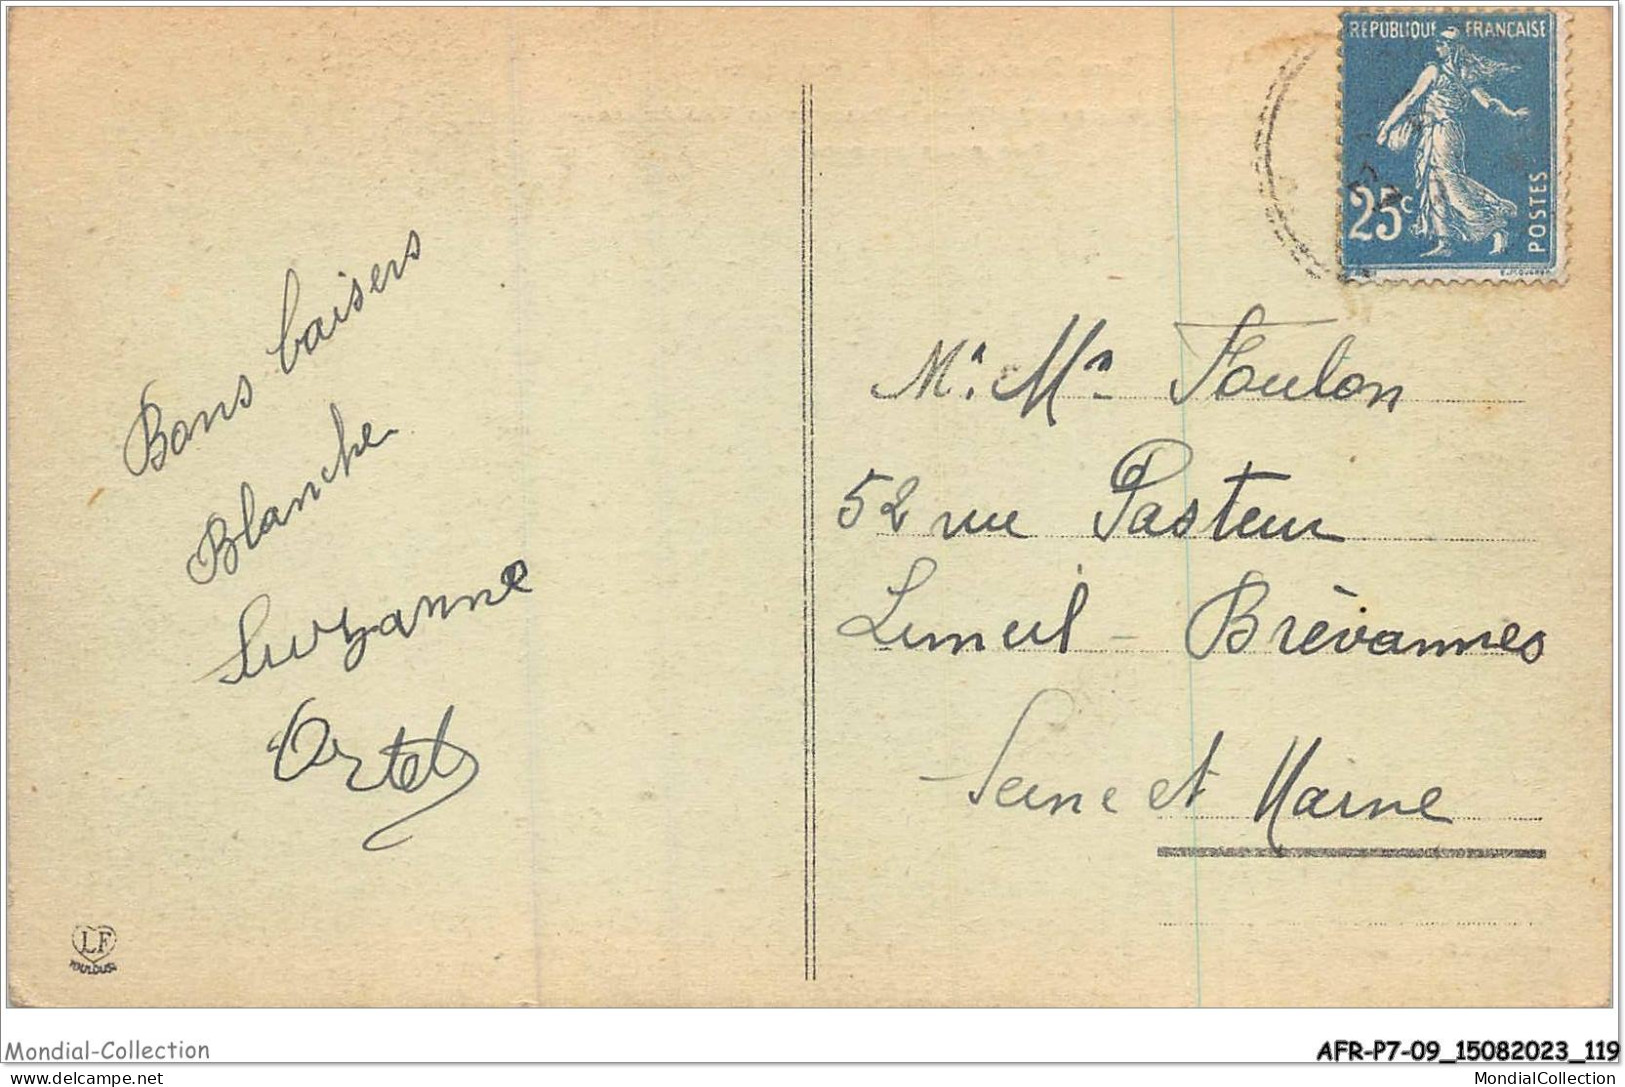 Bons baisers
Blanche
Suzanne
Ortet
LF
TOULOUSE
RÉPUBLIQUE FRANÇAISE
25c
POSTES
Mr. Mm Foulon
52 rue Pasteur
Limeil - Brèvannes
Seine et Marne
Mondial-Collection
AFR-P7-09_15082023_119
delcampe.net
MondialCollection